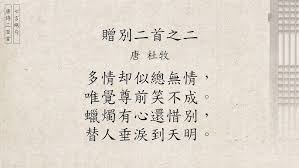 贈別二首之二
唐 杜牧
多情却似總無情，
唯覺尊前笑不成。
蠟燭有心還惜別，
替人垂淚到天明。
七言絕句
唐詩三百首